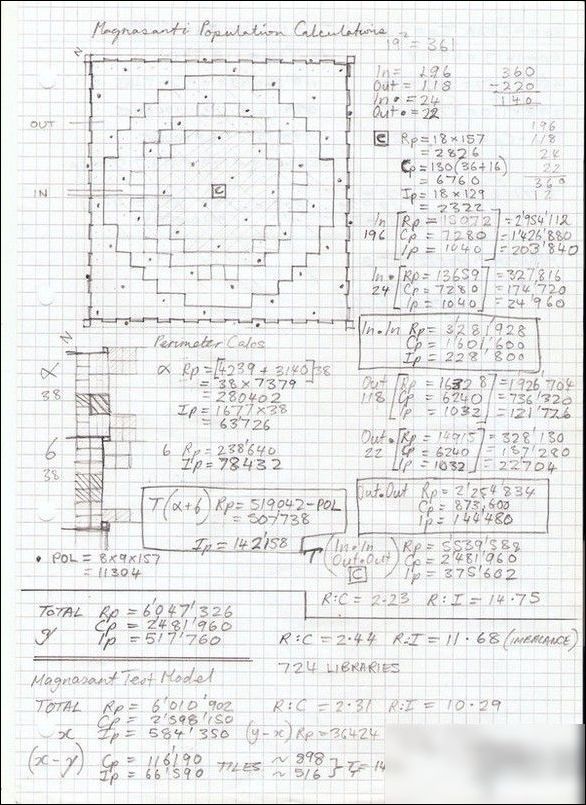 Magnasanti Population Calculations
19² = 361
N
OUT
IN
C
In = 196
Out = 118
In • = 24
Out • = 22
360
-220
140
196
118
24
22
360
12
C Rp = 18×157
= 2826
Cp = 130(36+16)
= 6760
Ip = 18×129
= 2322
In 196 [Rp = 15072] = 2'954'112
Cp = 7280 = 1'426'880
Ip = 1040 = 203'840
In • 24 [Rp = 13659] = 327'816
Cp = 7280 = 174'720
Ip = 1040 = 24'960
In•In Rp = 3'281'928
Cp = 1'601'600
Ip = 228'800
Out 118 [Rp = 16328] = 1'926'704
Cp = 6240 = 736'320
Ip = 1032 = 121'776
Out • 22 [Rp = 14915] = 328'130
Cp = 6240 = 137'280
Ip = 1032 = 22704
Out•Out Rp = 2'254'834
Cp = 873,600
Ip = 144'480
(In•In Out•Out C) Rp = 5'539'588
Cp = 2'481'960
Ip = 375'602
R:C = 2.23 R:I = 14.75
N
Perimeter Calcs
α
38
α Rp = [4239 + 3140]38
= 38×7379
= 280402
Ip = 1677×38
= 63'726
6
38
6 Rp = 238'640
Ip = 78432
T(α+6) Rp = 519042-POL
= 507738
Ip = 142158
• POL = 8×9×157
= 11304
TOTAL Rp = 6'047'326
y Cp = 2'481'960
Ip = 517'760
R:C = 2.44 R:I = 11.68 (IMBALANCE)
724 LIBRARIES
Magnasant Test Model
TOTAL Rp = 6'010'902
Cp = 2'598'150
x Ip = 584'350
R:C = 2.31 R:I = 10.29
(y-x) Rp = 36424
(x-y) Cp = 116190
Ip = 66'590
TILES ~ 898
~ 516